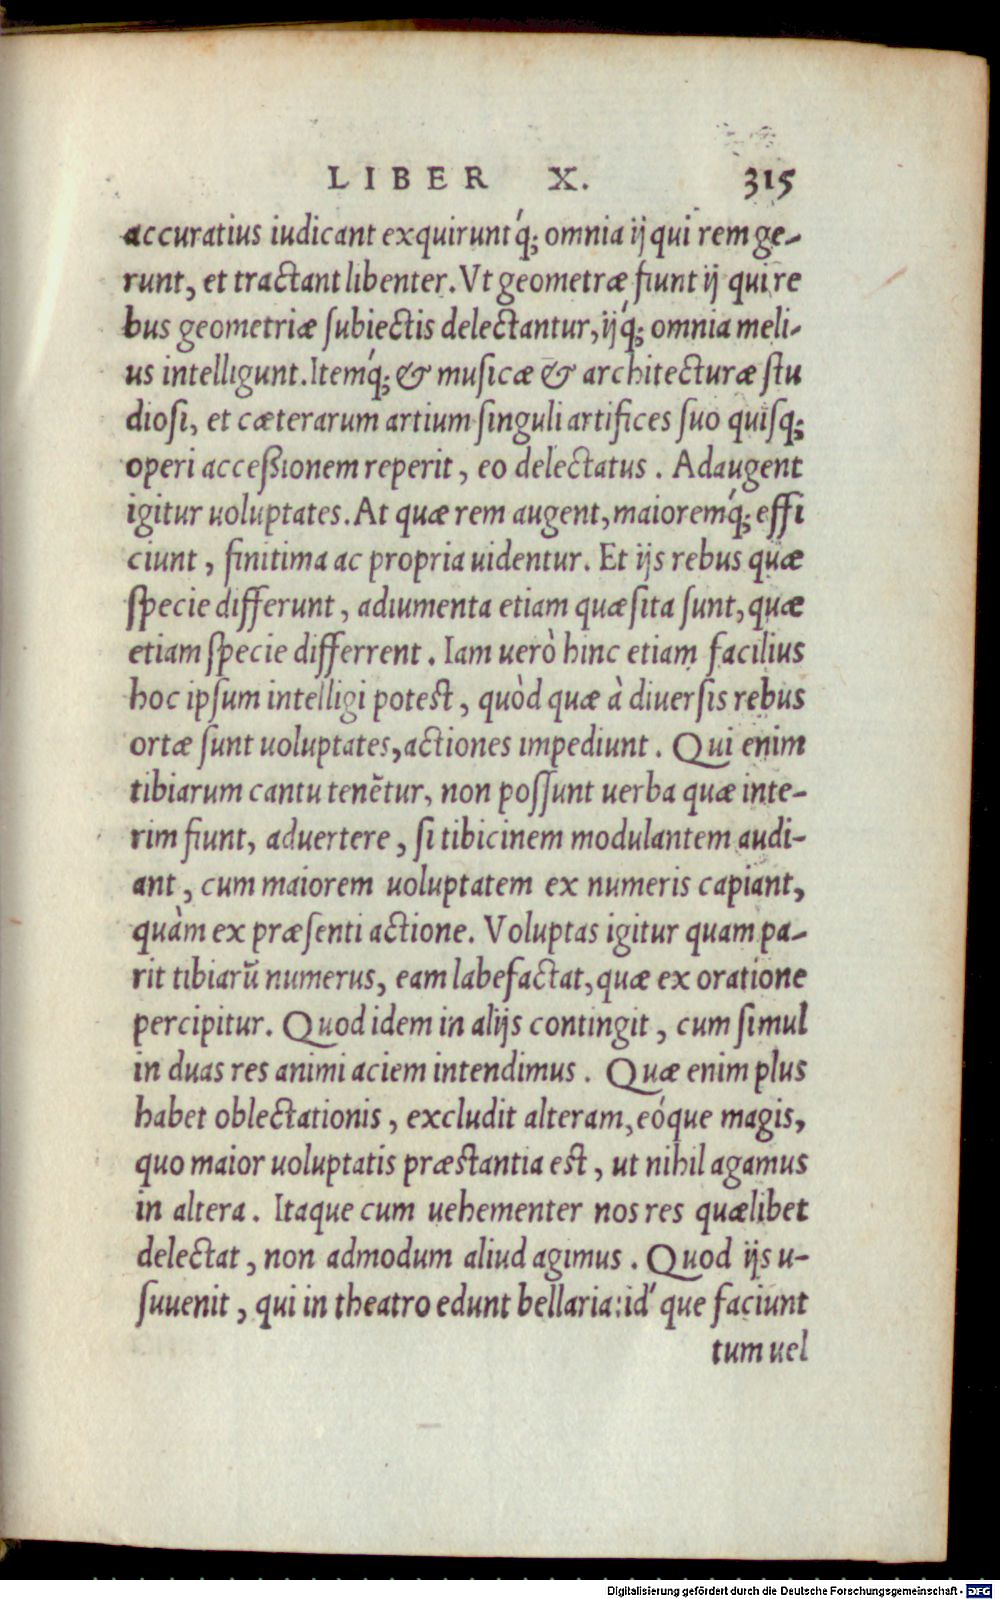 LIBER X. 315
accuratius iudicant exquiruntq́; omnia ij qui rem ge-
runt, et tractant libenter. Vt geometræ fiunt ij qui re
bus geometriæ ſubiectis delectantur, ijq́; omnia meli-
us intelligunt. Itemq́; & muſicæ & architecturæ ſtu
dioſi, et cæterarum artium ſinguli artifices ſuo quiſq;
operi acceßionem reperit, eo delectatus. Adaugent
igitur uoluptates. At quæ rem augent, maioremq́; effi
ciunt, finitima ac propria uidentur. Et ijs rebus quæ
ſpecie differunt, adiumenta etiam quæſita ſunt, quæ
etiam ſpecie differrent. Iam uerò hinc etiam facilius
hoc ipſum intelligi poteſt, quòd quæ à diuerſis rebus
ortæ ſunt uoluptates, actiones impediunt. Qui enim
tibiarum cantu tenẽtur, non poſſunt uerba quæ inte-
rim fiunt, aduertere, ſi tibicinem modulantem audi-
ant, cum maiorem uoluptatem ex numeris capiant,
quàm ex præſenti actione. Voluptas igitur quam pa-
rit tibiarũ numerus, eam labefactat, quæ ex oratione
percipitur. Quod idem in alijs contingit, cum ſimul
in duas res animi aciem intendimus. Quæ enim plus
habet oblectationis, excludit alteram, eóque magis,
quo maior uoluptatis præſtantia eſt, ut nihil agamus
in altera. Itaque cum uehementer nos res quælibet
delectat, non admodum aliud agimus. Quod ijs u-
ſuuenit, qui in theatro edunt bellaria: id́ que faciunt
tum uel
Digitalisierung gefördert durch die Deutsche Forschungsgemeinschaft - DFG